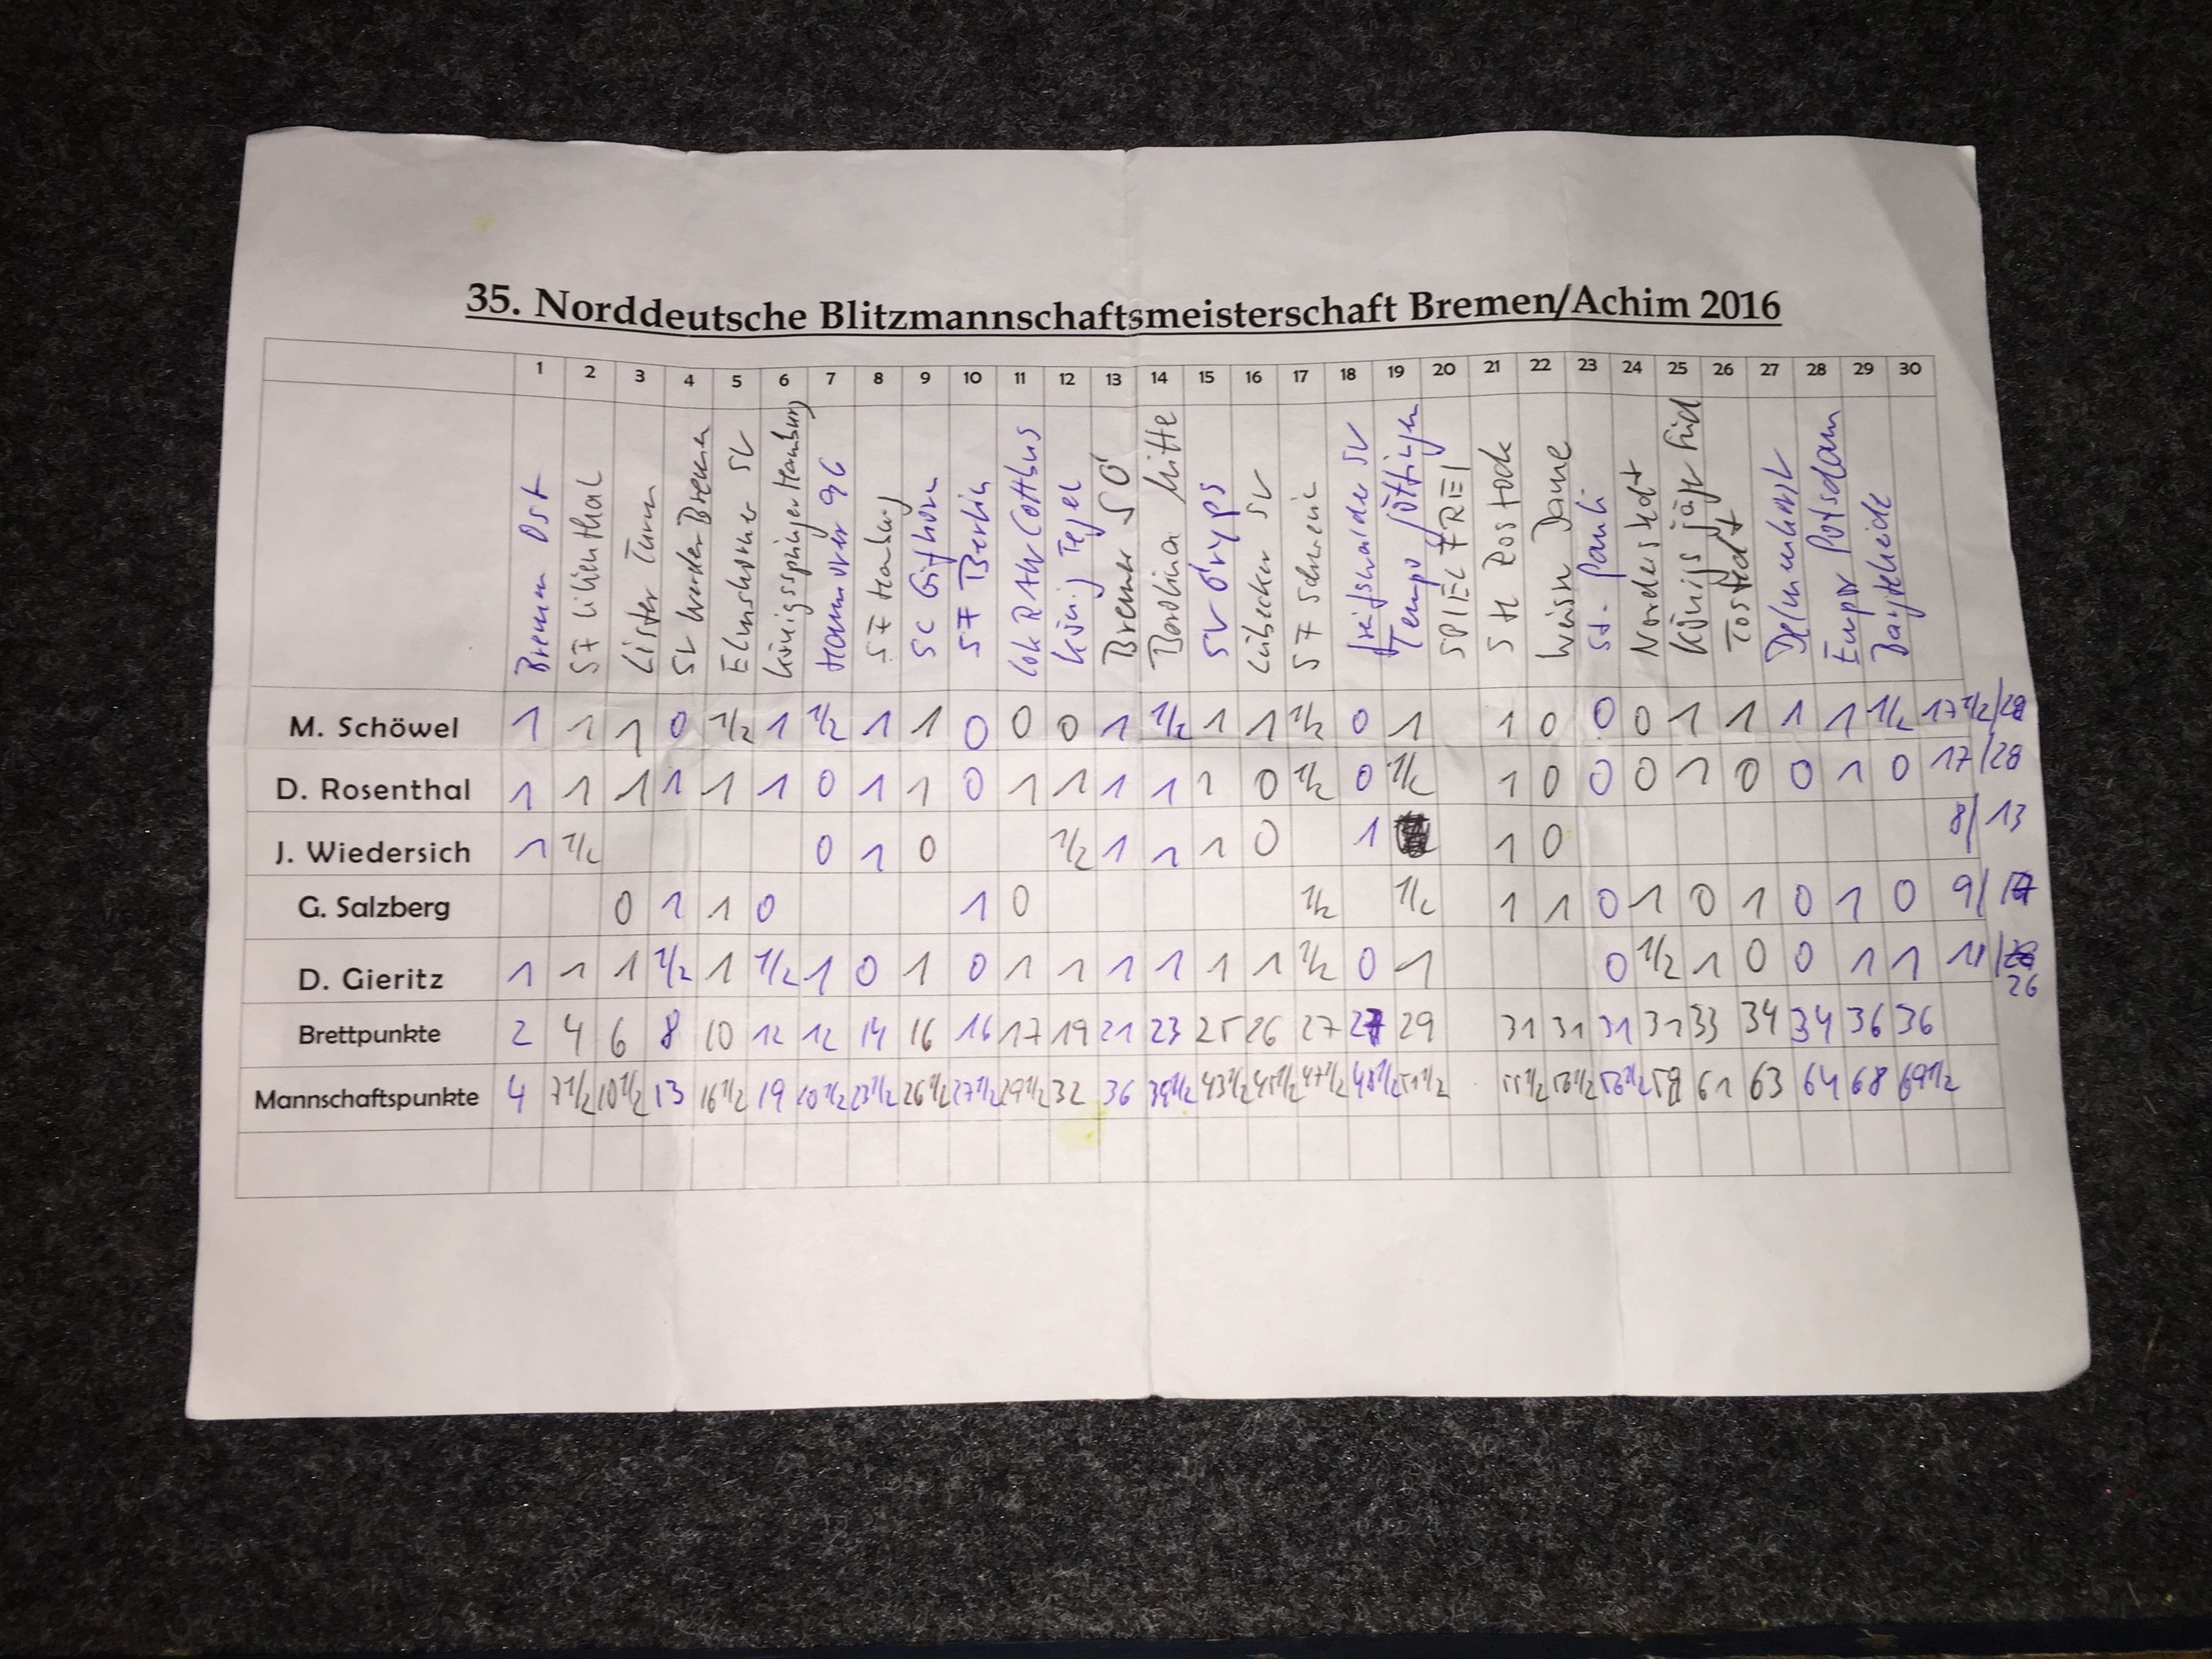 35. Norddeutsche Blitzmannschaftsmeisterschaft Bremen/Achim 2016
1 2 3 4 5 6 7 8 9 10 11 12 13 14 15 16 17 18 19 20 21 22 23 24 25 26 27 28 29 30
Bremen Ost
SF Lilienthal
Lister Turm
SV Werder Bremen
Elmshorner SV
Königsspringer Hamburg
Hannover 96
SF Hamburg
SC Gifhorn
SF Berlin
Lok RAW Cottbus
König Tegel
Bremer SG
Berolina Mitte
SV Gryps
Lübecker SV
SF Schwerin
Greifswalder SV
Tempo Göttingen
SPIELFREI
Rostock
Weisse Dame
St. Pauli
Norderstedt
Königsjäger Süd
Tostedt
Delmenhorst
Empor Potsdam
Bargteheide
M. Schöwel 1 1 1 0 1/2 1 1/2 1 1 0 0 0 1 1/2 1 1 1/2 0 1 1 0 0 0 1 1 1 1 1/2 17 1/2/28
D. Rosenthal 1 1 1 1 1 1 0 1 1 0 1 1 1 1 1 0 1/2 0 1/2 1 0 0 0 1 0 0 1 0 17/28
J. Wiedersich 1 1/2 0 1 0 1/2 1 1 1 0 1 1 0 8/13
G. Salzberg 0 1 1 0 1 0 1/2 1/2 1 1 0 1 0 1 0 1 0 9/17
D. Gieritz 1 1 1 1/2 1 1/2 1 0 1 0 1 1 1 1 1 1 1/2 0 1 0 1/2 1 0 0 1 1 18/26
Brettpunkte 2 4 6 8 10 12 12 14 16 16 17 19 21 23 25 26 27 27 29 31 31 31 31 33 34 34 36 36
Mannschaftspunkte 4 7 1/2 10 1/2 13 16 1/2 19 20 1/2 23 1/2 26 1/2 27 1/2 29 1/2 32 36 39 1/2 43 1/2 45 1/2 47 1/2 48 1/2 51 1/2 55 1/2 56 1/2 56 1/2 58 61 63 64 68 69 1/2